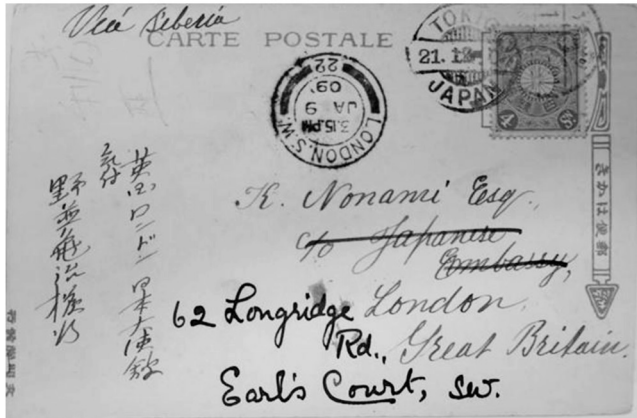 Viâ Siberia
CARTE POSTALE
TOKIO
21.12
JAPAN
4 Sn
LONDON. S.W.
3.15.PM
JA 9
09
22
K. Nonami Esq.,
c/o Japanese
Embassy,
62 Longridge London,
Rd., Great Britain.
Earl's Court, SW.
英国ロンドン日本大使館
気付
野並
きかは便郵